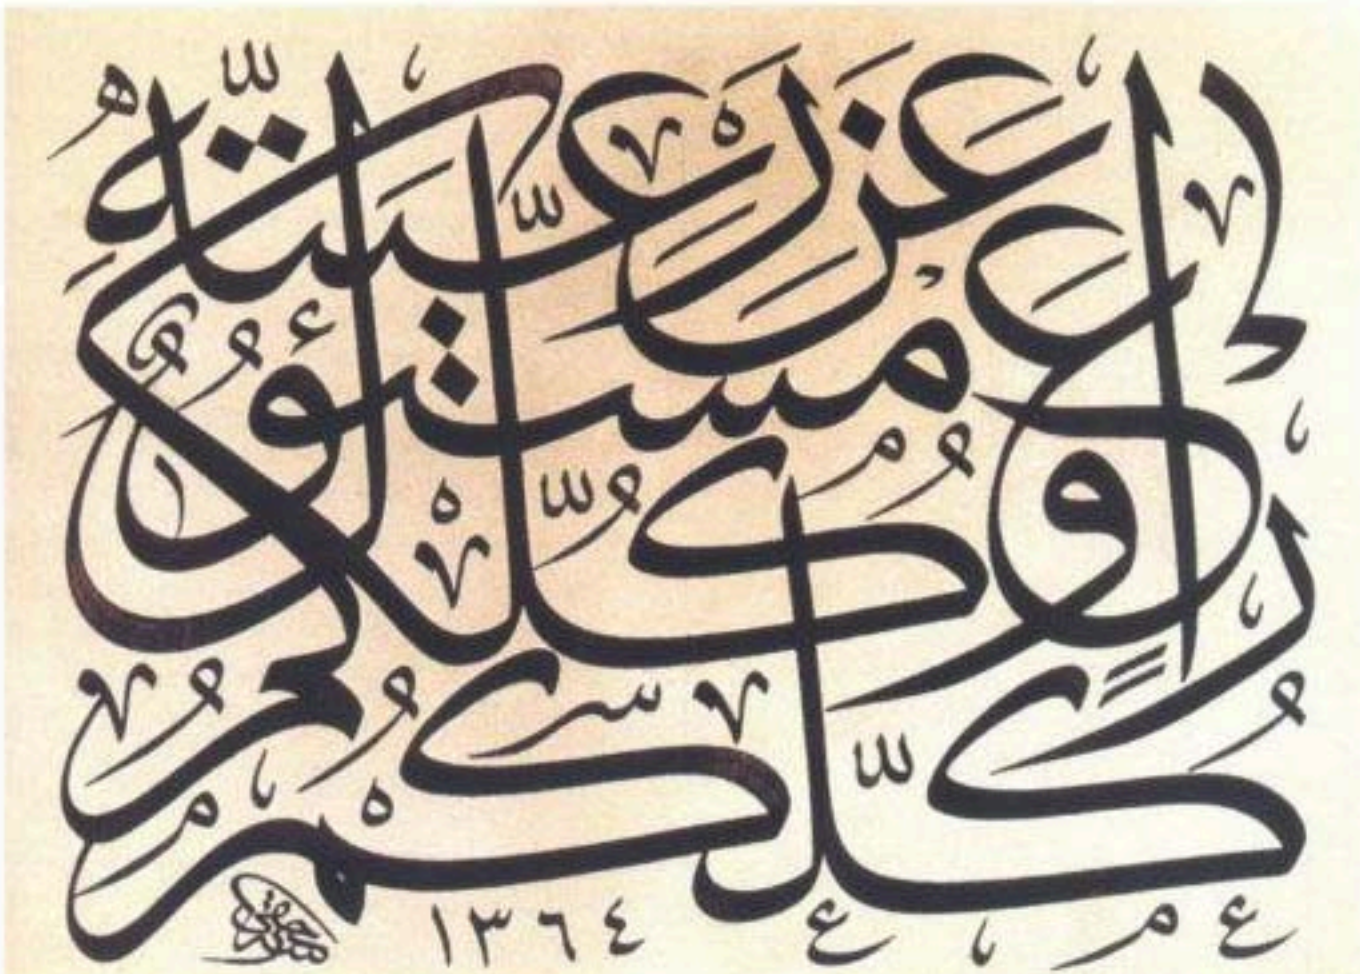 كُلُّكُمْ رَاعٍ وَكُلُّكُمْ مَسْئُولٌ عَنْ رَعِيَّتِهِ
١٣٦٤